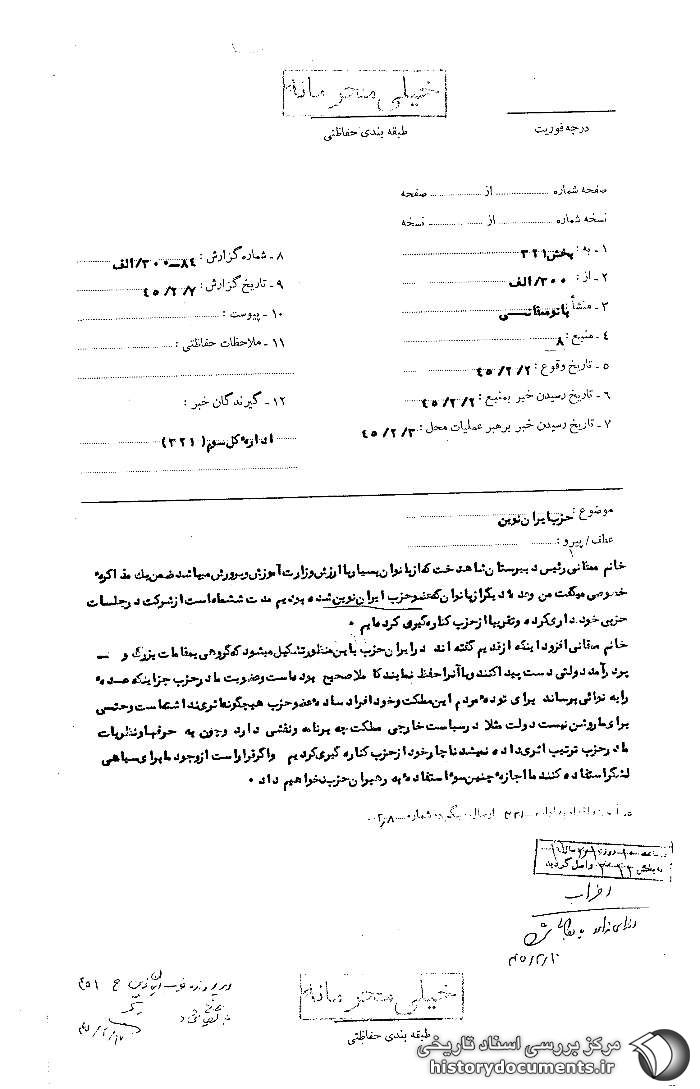 خیلی محرمانه
طبقه بندی حفاظتی
درجه فوریت
صفحه شماره ........ از ........ صفحه
نسخه شماره ........ از ........ نسخه
۱ ـ به : بخش ۳۲۱
۲ ـ از : ۳۰۰/الف
۳ ـ منشأ
۴ ـ منبع : ۸
۵ ـ تاریخ وقوع : ۴۵/۲/۲
۶ ـ تاریخ رسیدن خبر بمنبع : ۴۵/۲/۲
۷ ـ تاریخ رسیدن خبر برهبر عملیات محل : ۴۵/۲/۳
۸ ـ شماره گزارش : ۸۴ـ۳۰۰/الف
۹ ـ تاریخ گزارش : ۴۵/۲/۷
۱۰ ـ پیوست :
۱۱ ـ ملاحظات حفاظتی :
۱۲ ـ گیرندگان خبر :
اداره کل سوم (۳۲۱)
موضوع : حزب ایران نوین
عطف / پیرو :
خانم مغانی رئیس دبیرستان شاهدخت که از بانوان بسیار با ارزش وزارت آموزش و پرورش میباشد ضمن یک مذاکره
خصوصی میگفت من وعده دیگر از بانوان که عضو حزب ایران نوین شده بودیم مدت ششماه است از شرکت در جلسات
حزبی خودداری کرده و تقریبا از حزب کناره گیری کرده ایم .
خانم مغانی افزود اینکه از قدیم گفته اند در ایران حزب باین منظور تشکیل میشود که گروهی بمقامات بزرگ و ـ
پردرآمد دولتی دست پیدا کنند و یا آنرا حفظ نمایند کاملا صحیح بوده است و عضویت ما در حزب جز اینکه عده
را به نوائی برساند برای توده مردم این مملکت و خود افراد ساده عضو حزب هیچگونه اثری نداشته است و حتی
برای ما روشن نیست دولت مثلا در سیاست خارجی مملکت چه برنامه و نقشی دارد و چون به حرفها و نظریات
ما در حزب ترتیب اثری داده نمیشد ناچار خود از حزب کناره گیری کردیم و اگر قرار است از وجود ما برای سیاهی
لشگر استفاده کنند ما اجازه چنین سوء استفاده به رهبران حزب نخواهیم داد .
احزاب
۴۵/۲/۱۰
خیلی محرمانه
طبقه بندی حفاظتی
مرکز بررسی اسناد تاریخی
historydocuments.ir